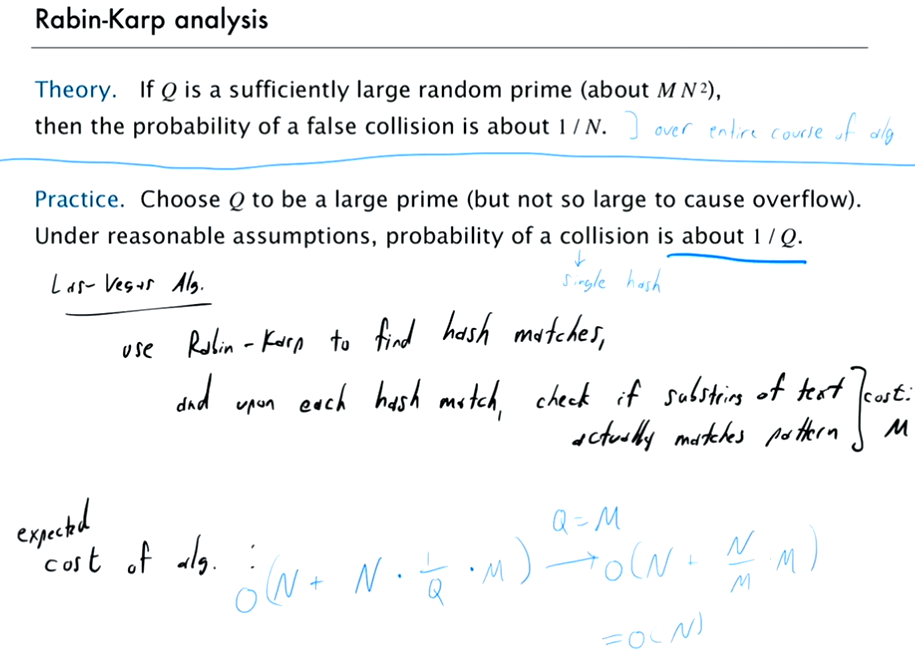 Rabin-Karp analysis
Theory. If Q is a sufficiently large random prime (about M N²),
then the probability of a false collision is about 1 / N. ] over entire course of alg
Practice. Choose Q to be a large prime (but not so large to cause overflow).
Under reasonable assumptions, probability of a collision is about 1 / Q.
↓
single hash
Las-Vegas Alg.
use Rabin-Karp to find hash matches,
and upon each hash match, check if substring of text ] cost:
actually matches pattern M
expected
cost of alg. :
O(N + N · 1/Q · M) → O(N + N/M · M)
Q = M
= O(N)